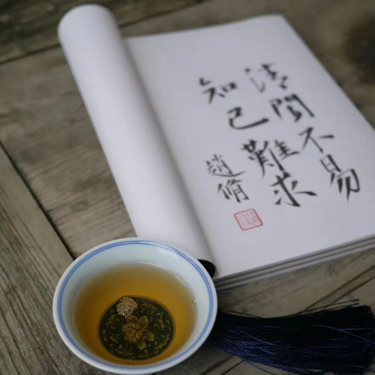 清閒不易
知己難求
趙脩